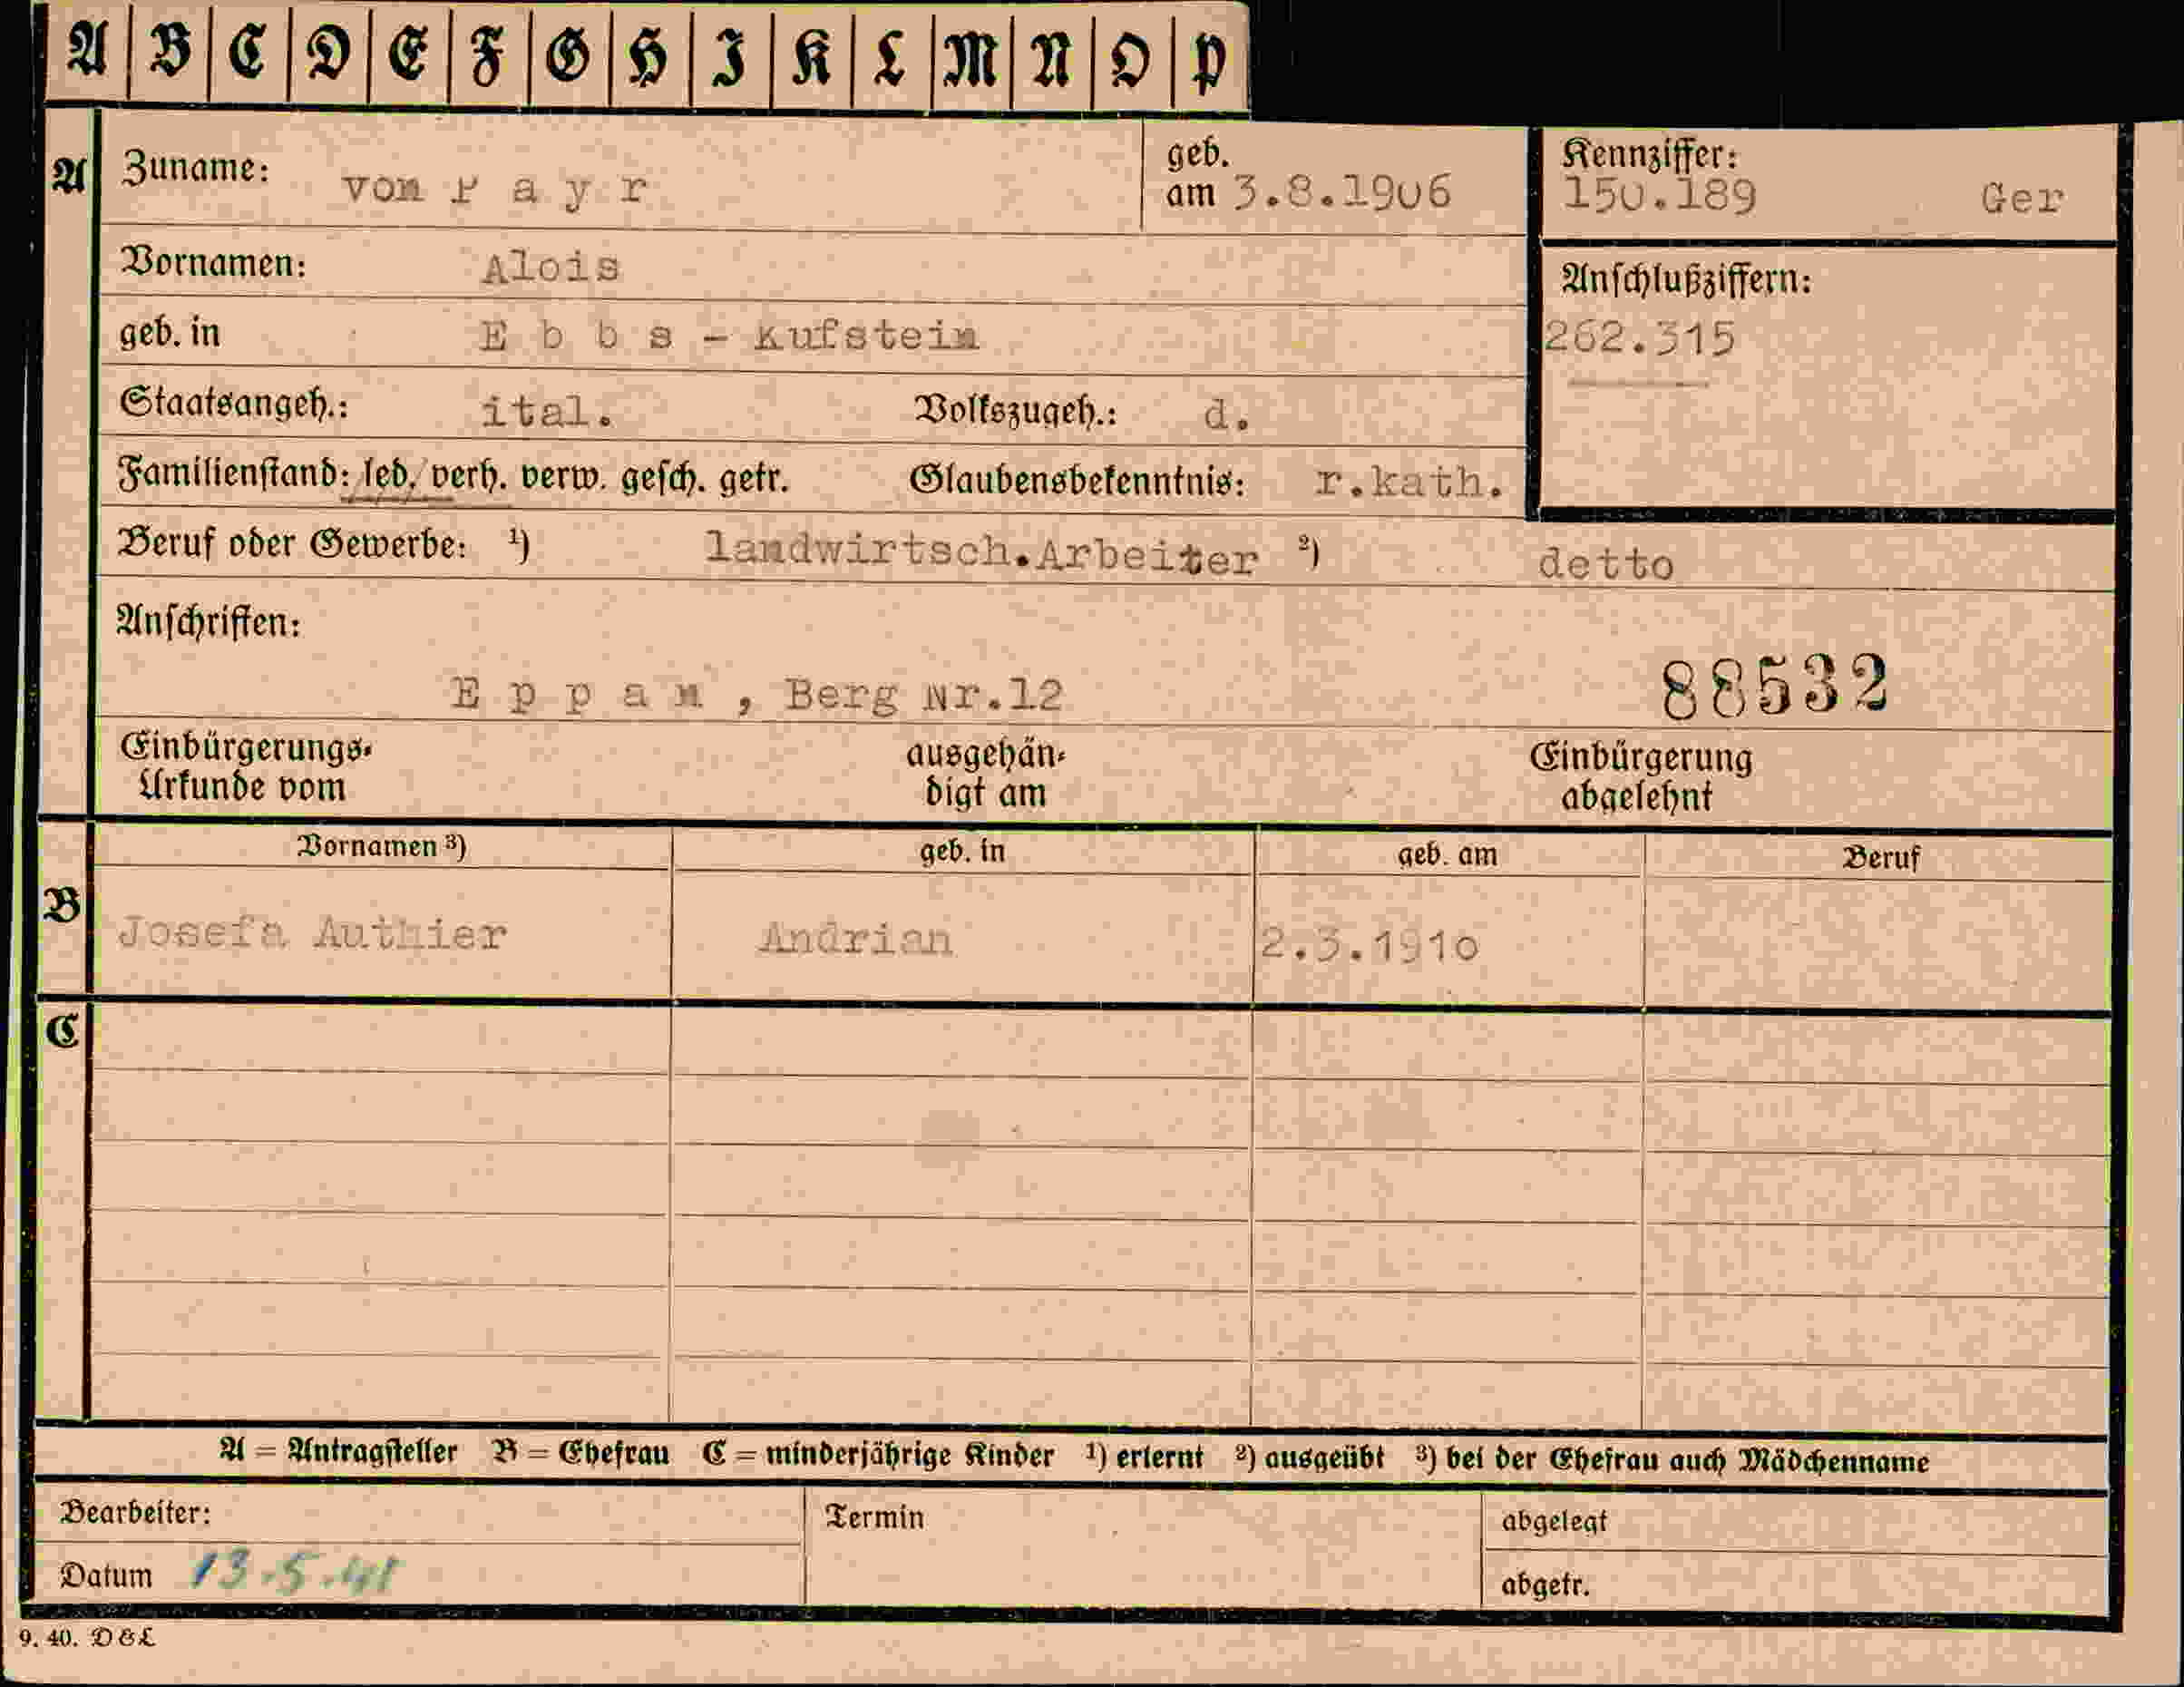 A B C D E F G H I K L M N O P
A Zuname: von P a y r geb. am 3.8.1906 Kennziffer: 150.189 Ger
Vornamen: Alois Anschlußziffern:
geb. in E b b s - Kufstein 262.315
Staatsangeh.: ital. Volkszugeh.: d.
Familienstand: led. verh. verw. gesch. getr. Glaubensbekenntnis: r.kath.
Beruf oder Gewerbe: 1) landwirtsch.Arbeiter 2) detto
Anschriften:
E p p a n , Berg Nr.12 88532
Einbürgerungs- ausgehän- Einbürgerung
Urkunde vom digt am abgelehnt
Vornamen 3) geb. in geb. am Beruf
B Josefa Authier Andrian 2.3.1910
C
A = Antragsteller B = Ehefrau C = minderjährige Kinder 1) erlernt 2) ausgeübt 3) bei der Ehefrau auch Mädchenname
Bearbeiter: Termin abgelegt
Datum 13.5.41 abgetr.
9. 40. D&L